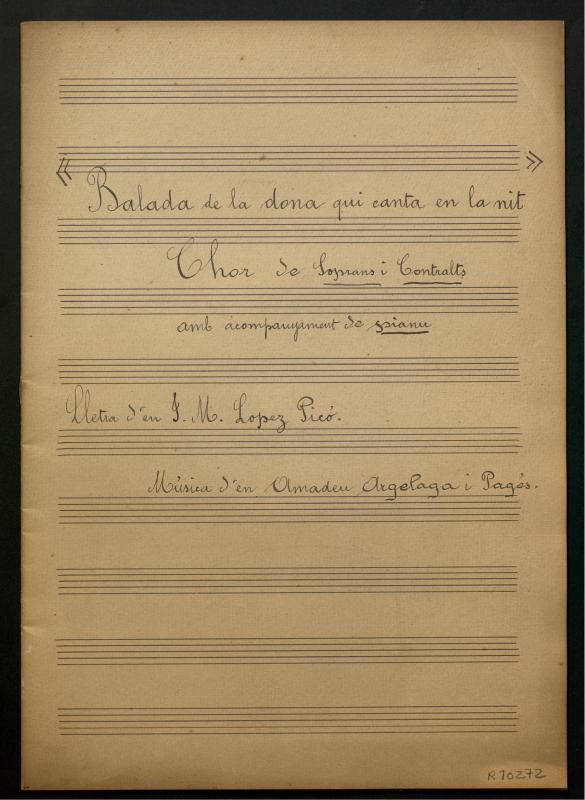 « Balada de la dona qui canta en la nit »
Chor de Soprans i Contralts
amb acompanyament de pianu
Lletra d'en J. M. Lopez Picó.
Música d'en Amadeu Argelaga i Pagés.
R.10272